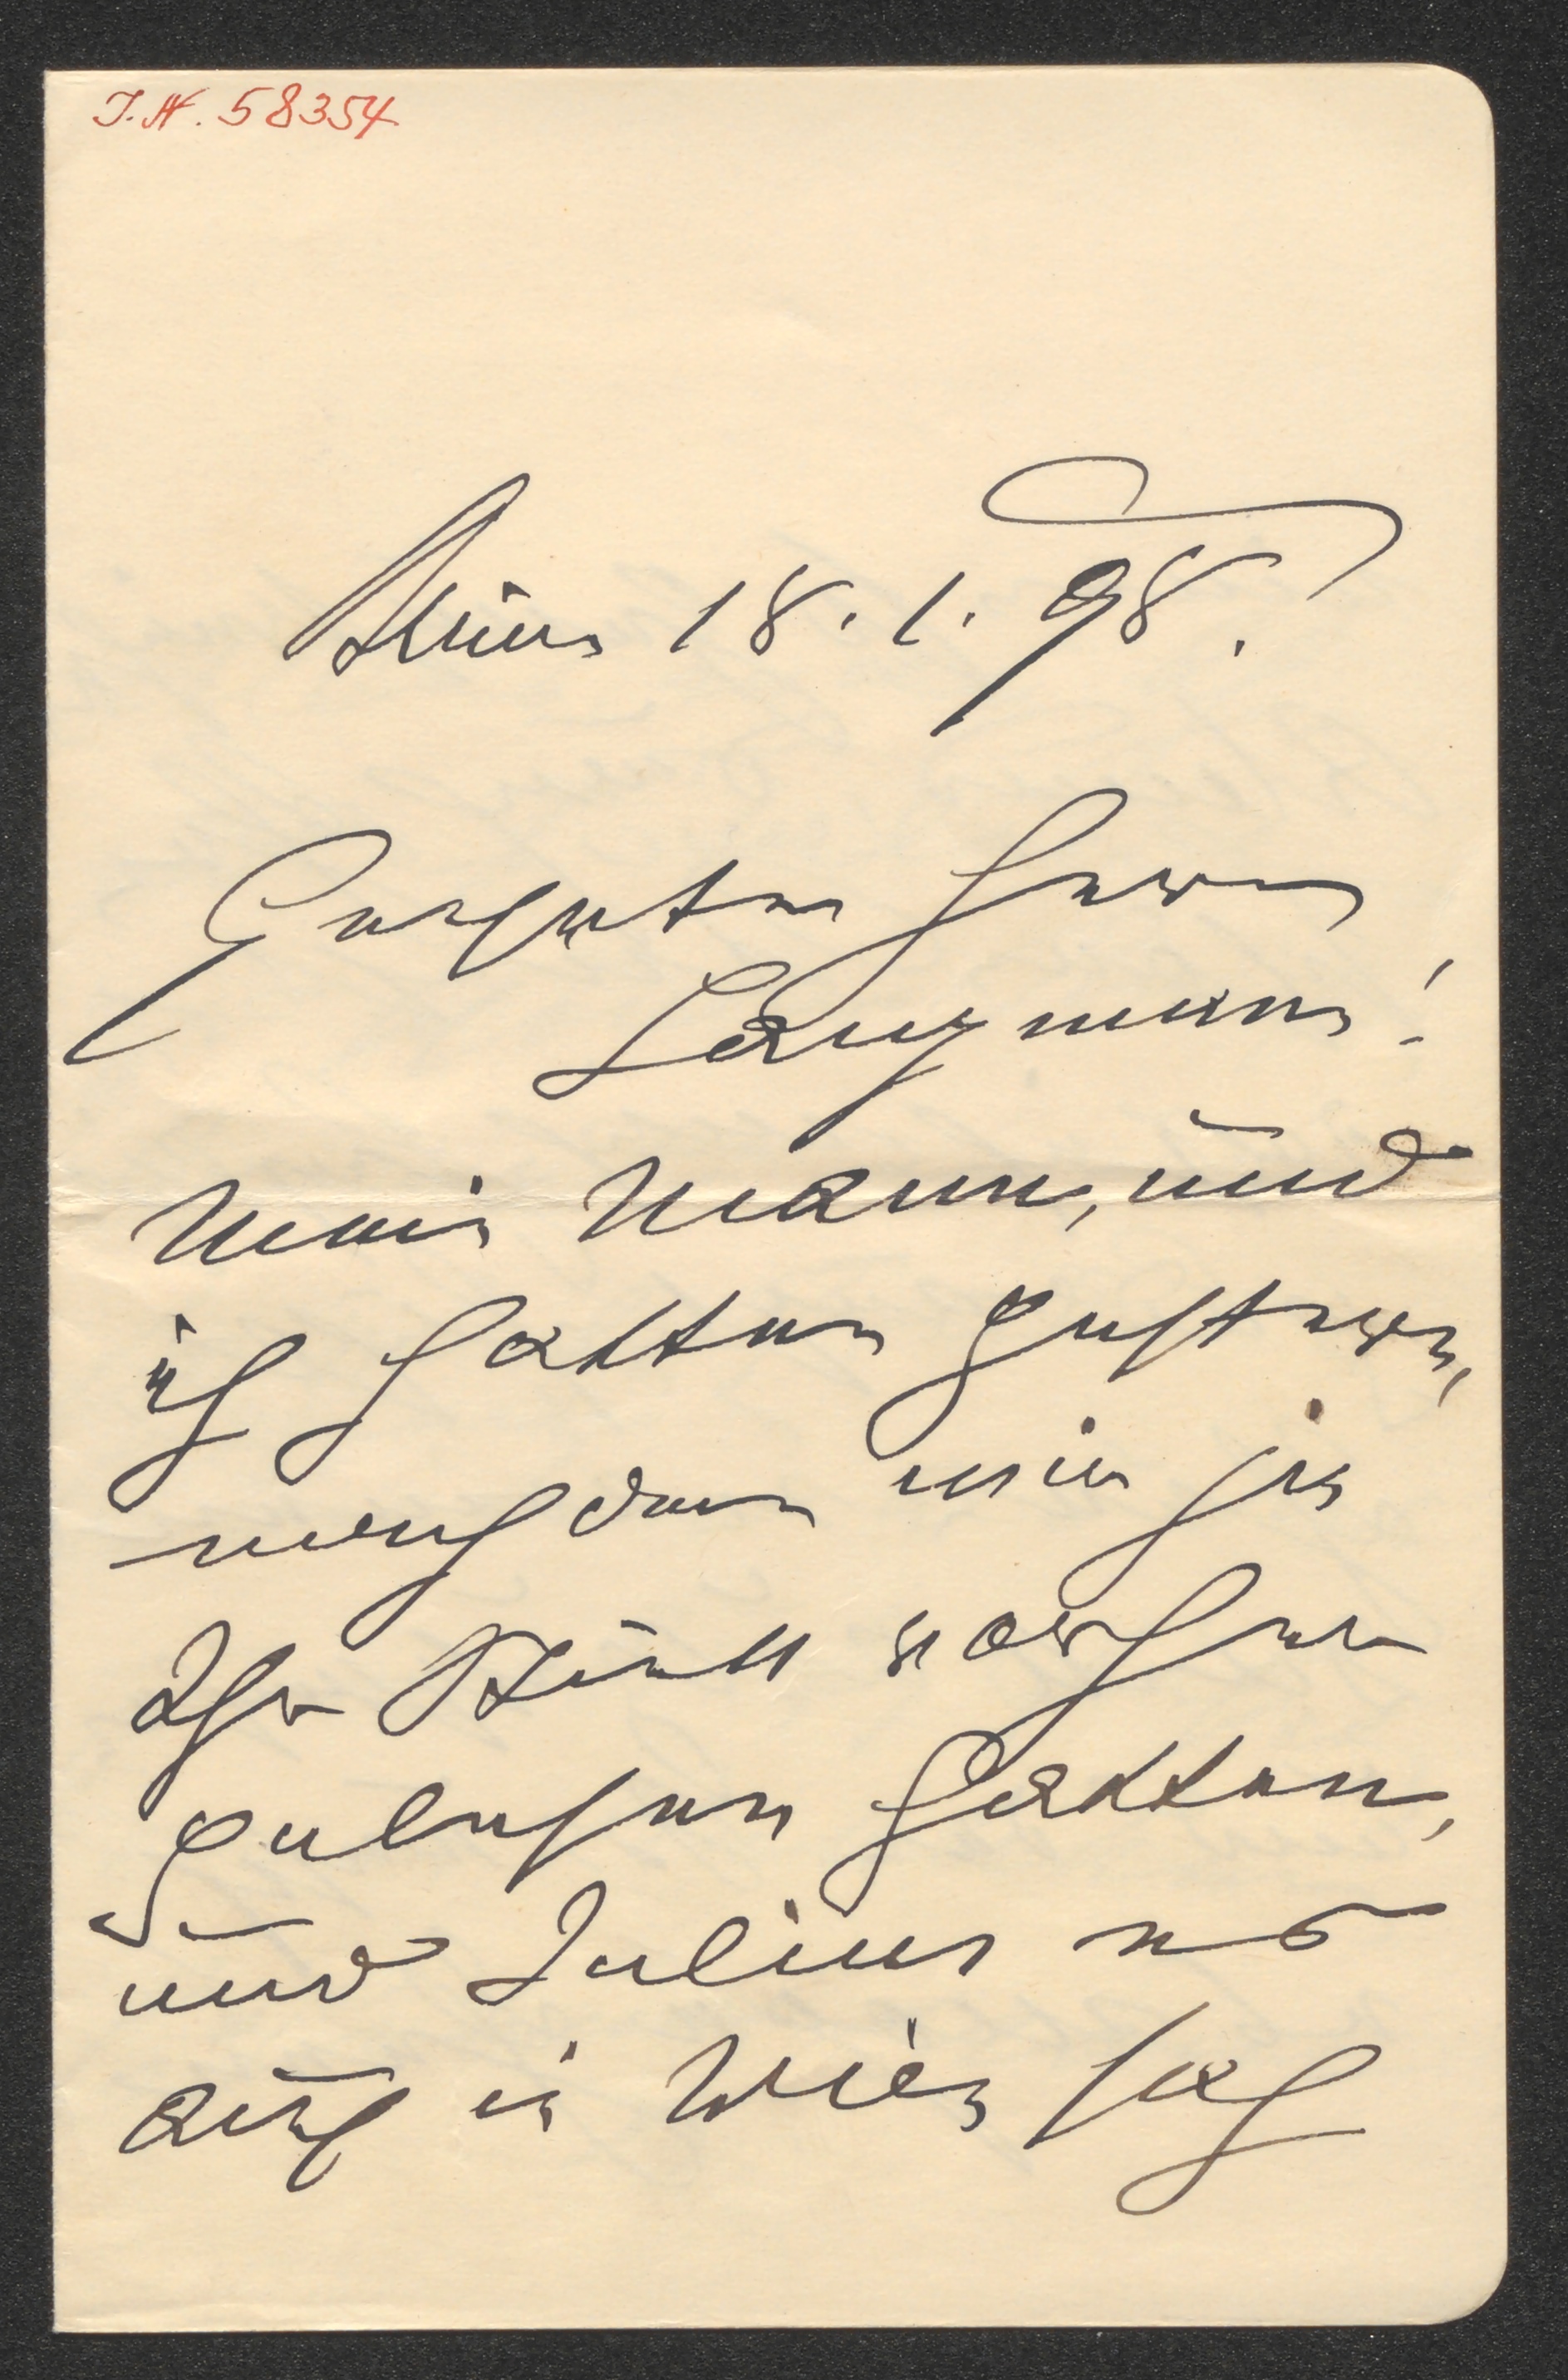 I.N. 58354
Brünn 18. 1. 98.
Geehrter Herr
Langmann!
Mein Mann, und
ich hatten gestern,
nachdem wir ja
Ihr Stück vorher
gelesen hatten,
und Julius es
auch in Wien sah